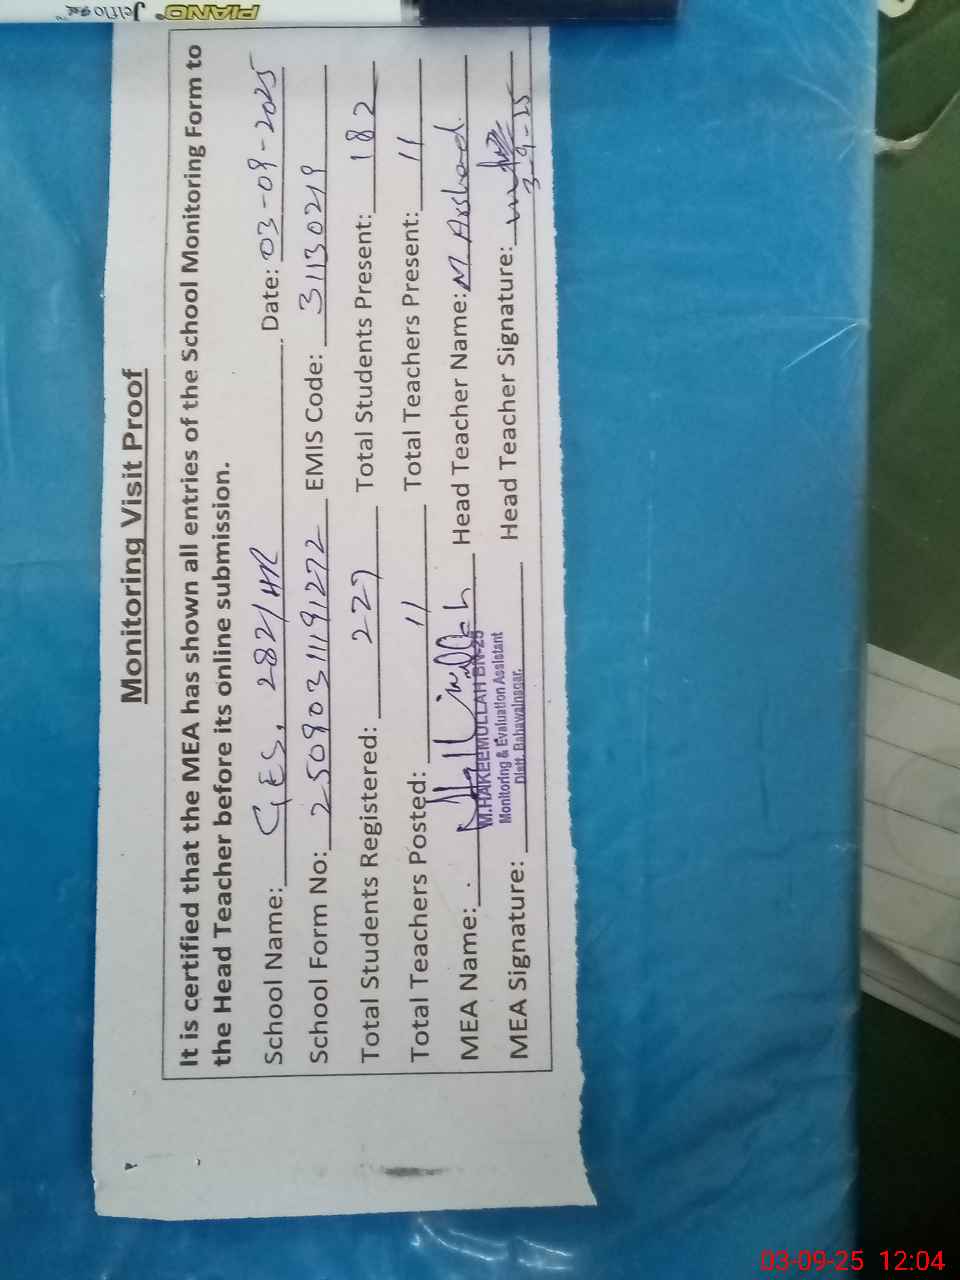 PIANO Jelflo gel
Monitoring Visit Proof
It is certified that the MEA has shown all entries of the School Monitoring Form to
the Head Teacher before its online submission.
School Name: GES, 282/HR Date: 03-09-2025
School Form No: 25090311191272 EMIS Code: 31130219
Total Students Registered: 227 Total Students Present: 182
Total Teachers Posted: 11 Total Teachers Present: 11
MEA Name: Head Teacher Name: M Arshad
M.HAKEEMULLAH BN-25
Monitoring & Evaluation Assistant
Distt. Bahawalnagar.
MEA Signature: Head Teacher Signature:
3-9-25
03-09-25 12:04